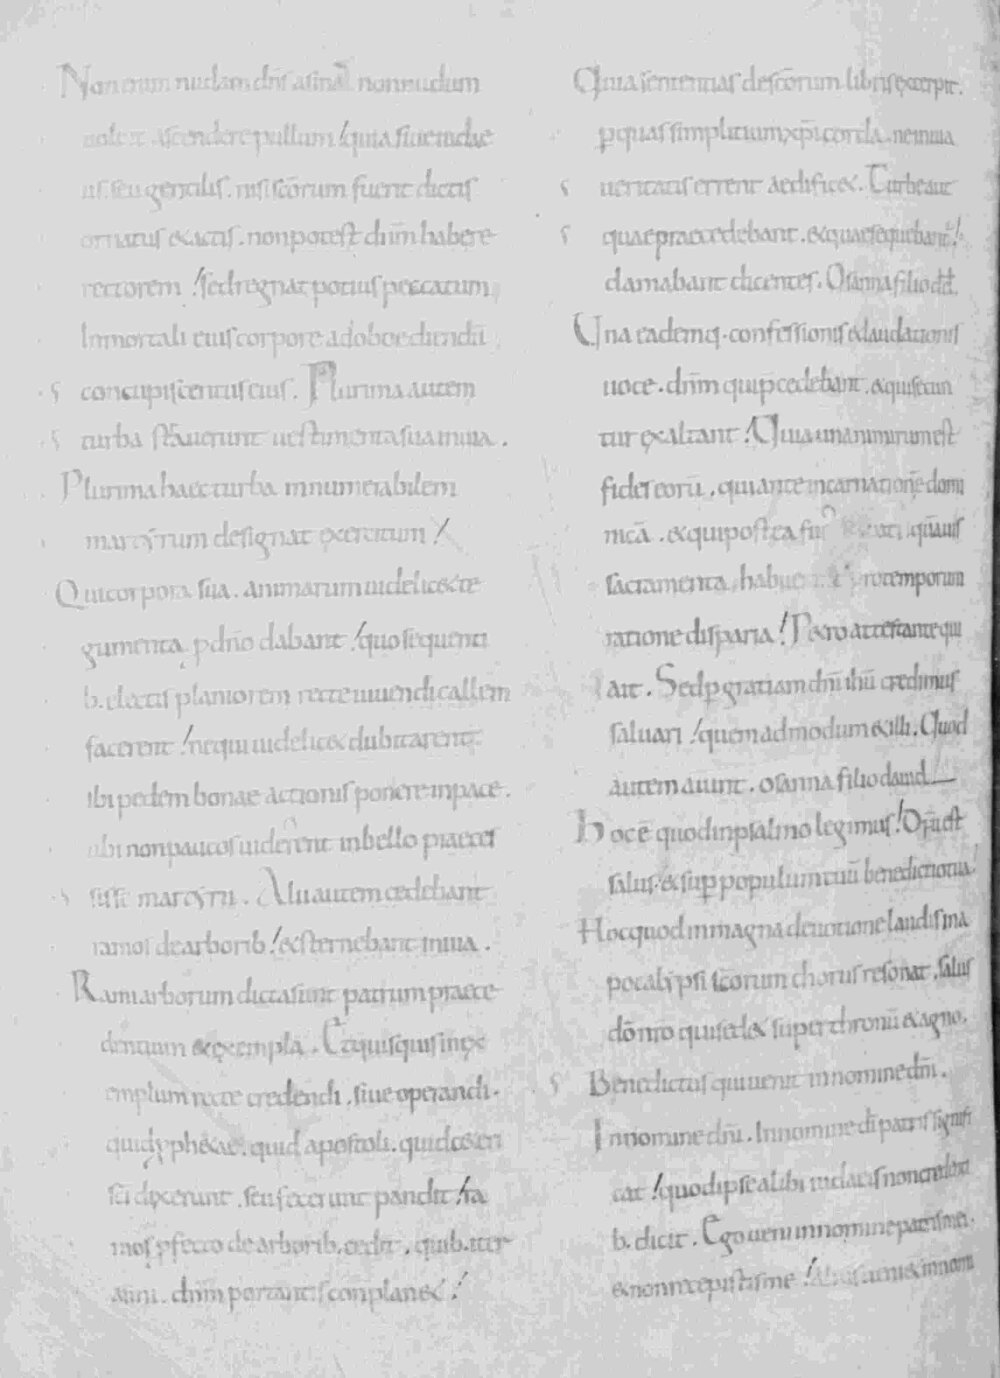 Non enim nudam dn̄s asinā nonnudum
uoluit ascendere pullum quia siue iudae
us. seu gentilis. nisi scōrum fuerit dictis
ornatus & actis. non potest dnm̄ habere
rectorem sed regnat potius peccatum
Inmortali eius corpore ad oboediendū
concupiscentiis eius. Plurima autem
turba strauerunt uestimenta sua in uia.
Plurima haec turba innumerabilem
martyrum designat exercitum
Qui corpora sua. animarum uidelic& te
gumenta p dn̄o dabant quo sequenti
b. electis planiorem recte uiuendi callem
facerent ne qui uidelic& dubitarent
ibi pedem bonae actionis ponere in pace.
ubi non paucos uiderent in bello praeces
sisse martyrii. Alii autem cedebant
ramos de arborib. & sternebant in uia.
Rami arborum dicta sunt patrum praece
dentium & exempla. Et quisquis in ex
emplum recte credendi. siue operandi.
quid prophetae. quid apostoli. quid ceteri
sci dixerunt. seu fecerunt pandit ra
mos pfecto de arborib. cedit. quib. iter
asini. dnm̄ portantis conplan&
Quia sententias de scōrum libris excerpit.
p quas simplicium xp̄i corda. ne in uia
ueritatis errent aedific&. Turbe aut
quae praecedebant. & quae sequebant̄
clamabant dicentes. Osanna filio dd.
Una eademq. confessionis & laudationis
uoce. dnm̄ qui p̄cedebant. & qui secun
tur exaltant Quia una nimirum est
fides eorū. qui ante incarnationē domi
nicā. & qui postea fuerunt quāuis
sacramenta habuerint pro temporum
ratione disparia P&ro attestante qui
ait. Sed p gratiam dn̄i ihū credimus
saluari quemadmodum & illi. Quod
autem aiunt. osanna filio dauid
Hoc ē quod in psalmo legimus Dn̄i est
salus. & sup populum tuū benedictio tua
Hoc quod in magna deuotione laudis in a
pocalypsi scōrum chorus resonat. salus
dō nr̄o qui sed& super thronū & agno.
Benedictus qui uenit in nomine dn̄i.
In nomine dn̄i. In nomine dī patris signifi
cat quod ipse alibi iudaeis non credenti
b. dicit. Ego ueni in nomine patris mei.
& non recepistis me alius ueni& in nomi